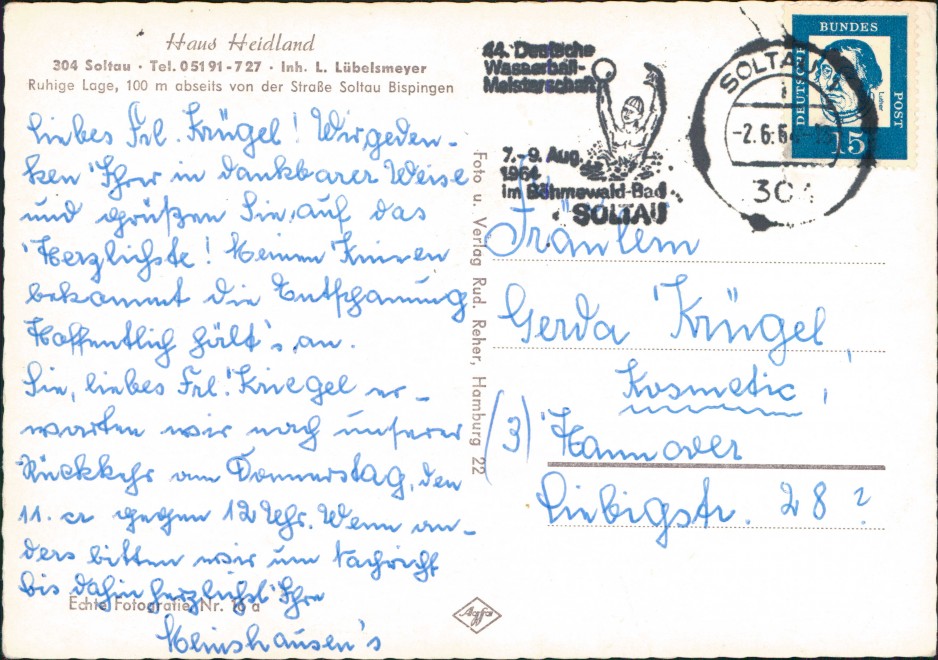 Haus Heidland
304 Soltau · Tel. 05191-727 · Inh. L. Lübelsmeyer
Ruhige Lage, 100 m abseits von der Straße Soltau Bispingen
liebes Frl. Krügel! Wir geden-
ken Ihrer in dankbarer Weise
und grüßen Sie, auf das
Herzlichste! Meinen Knieen
bekommt die Entspannung
Hoffentlich hält's, an.
Sie, liebes Frl. Kriegel er-
warten wir nach unserer
Rückkehr am Donnerstag, den
11. cr gegen 12 Uhr. Wenn an-
ders bitten wir um Nachricht
bis dahin herzlichst Ihre
Meinshausen's
Echte Fotografie Nr. a
Foto u. Verlag Rud. Reher, Hamburg 22
44. Deutsche
Wasserball-
Meisterschaft
7.-9. Aug.
1964
im Böhmewald-Bad
SOLTAU
SOLTAU
-2.6.64
304
DEUTSCHE
BUNDES
POST
Luther
15
Fräulein
Gerda Krügel,
Kosmetic,
(3) Hannover
Liebigstr. 28?
Agfa